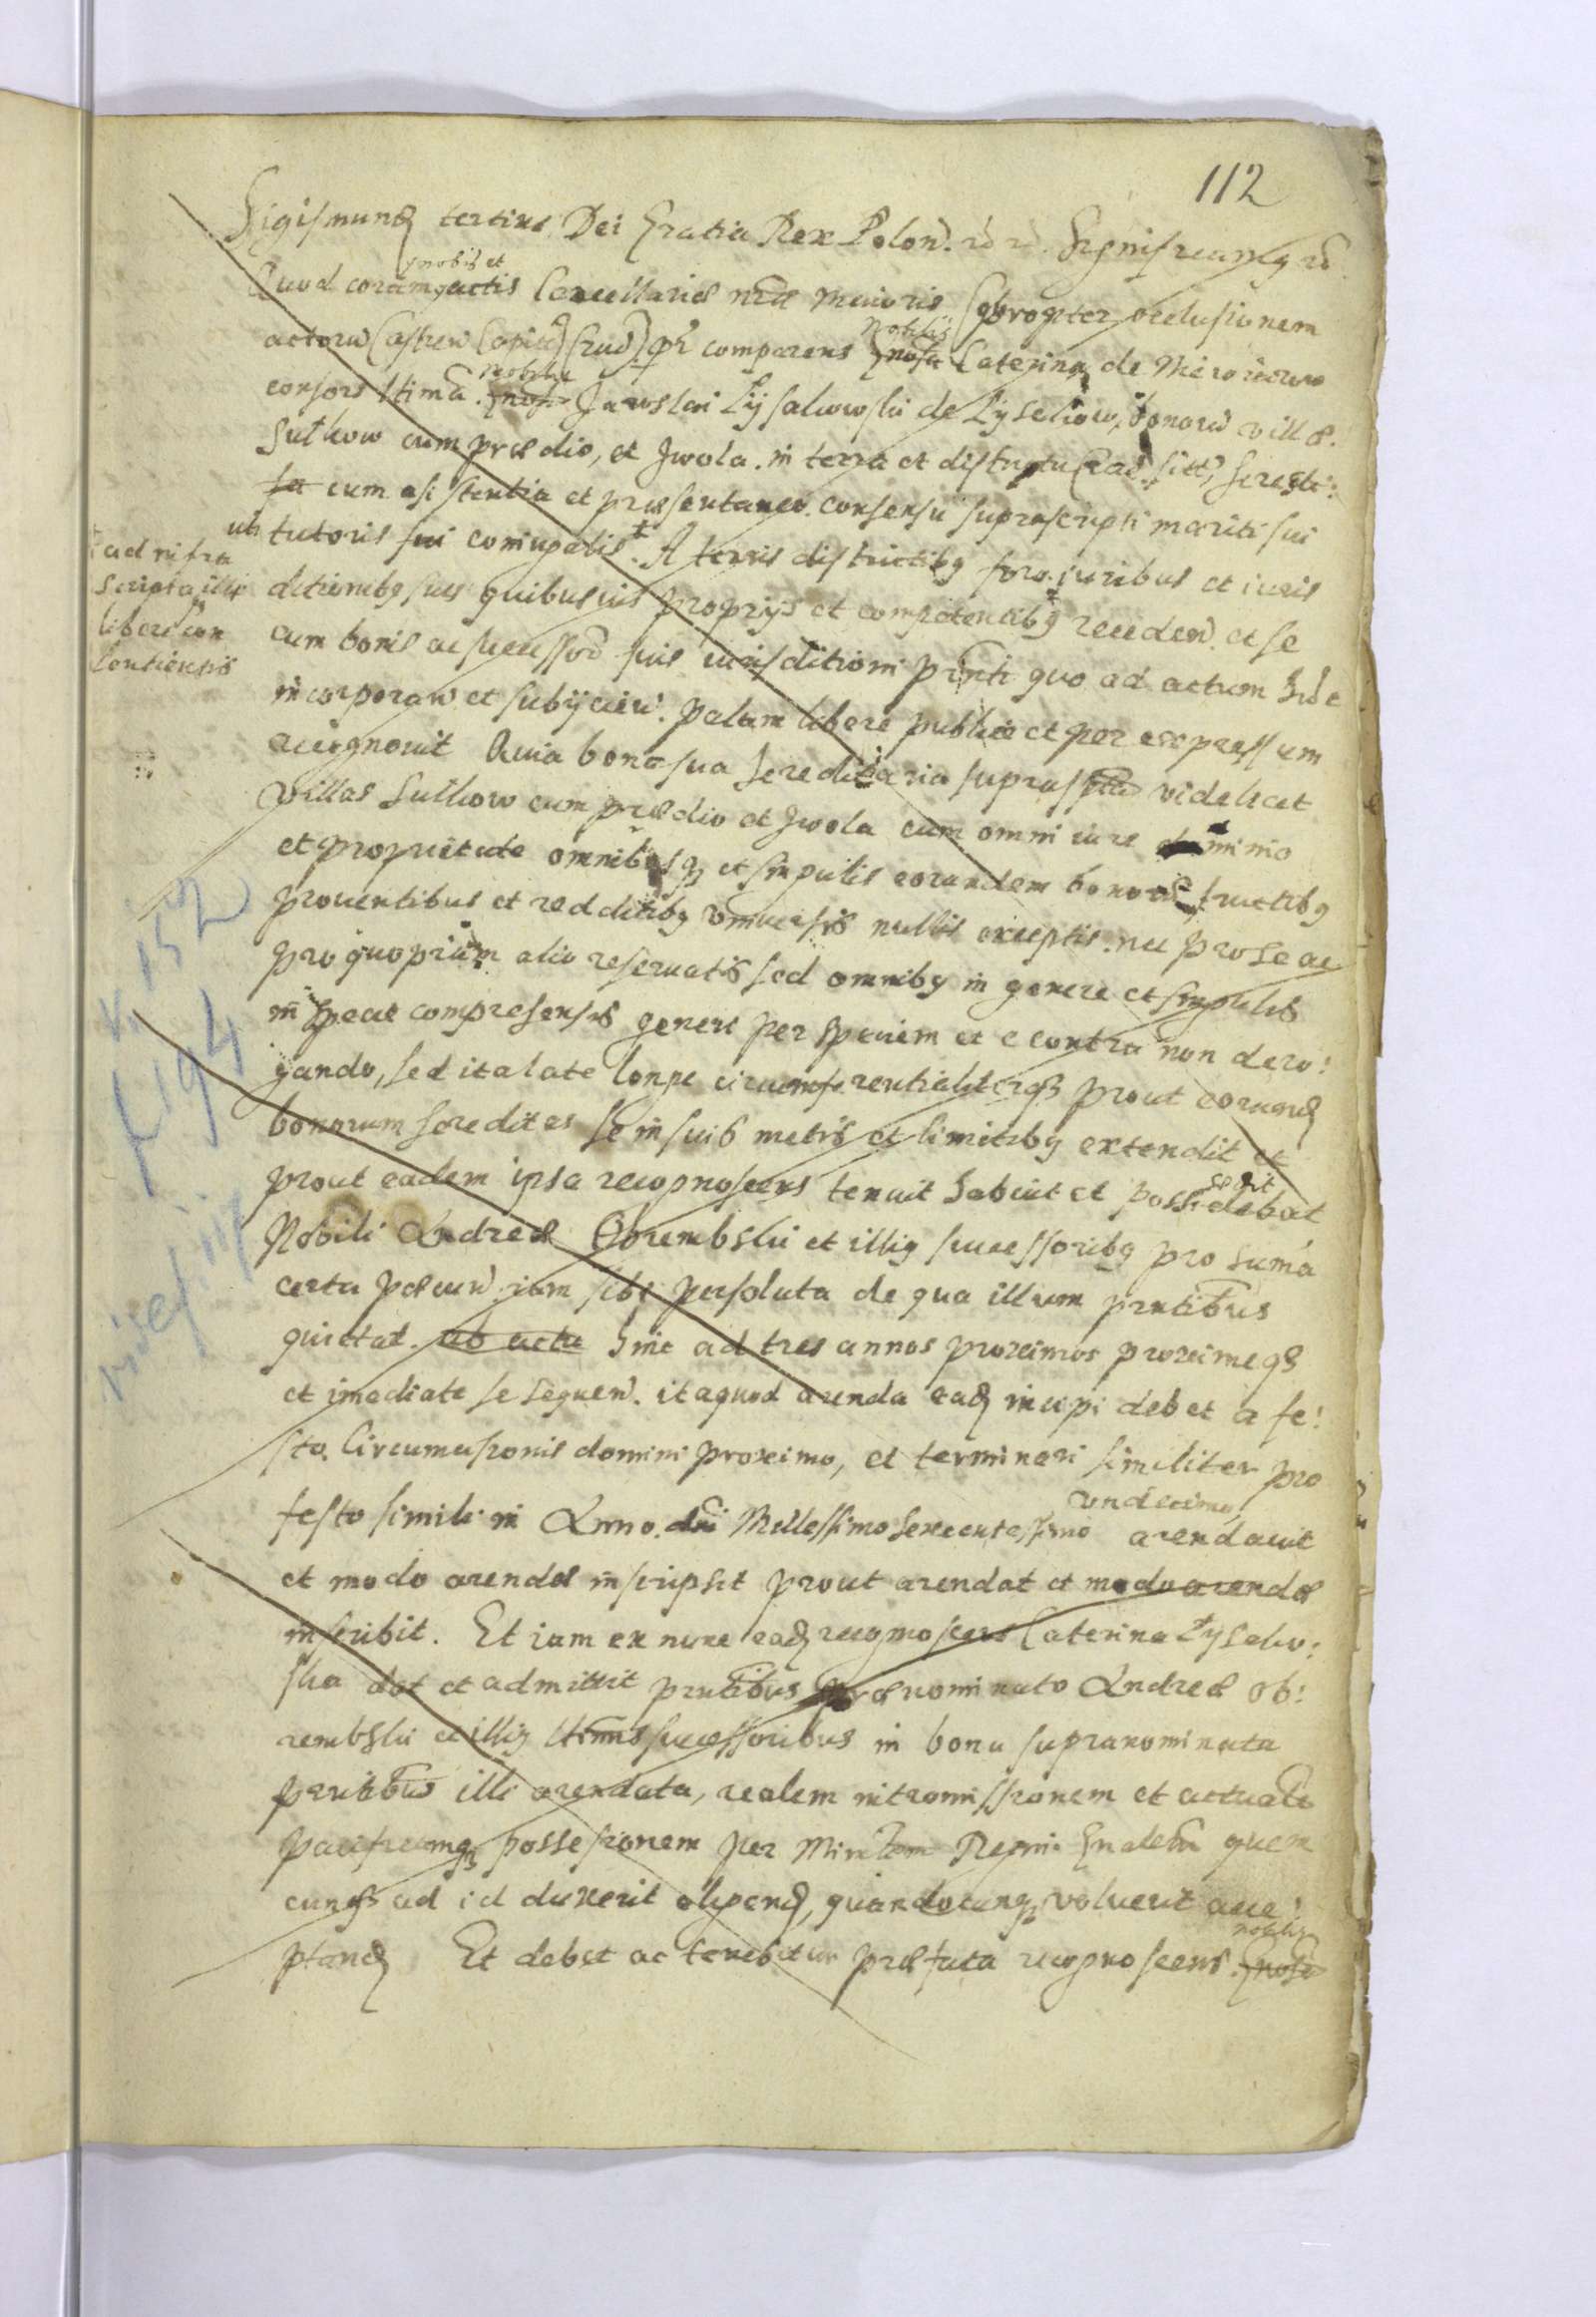 112
Sigismund9 tertius Dei Gratia Rex Polon. Significamus
nobis et
Quod coram actis Cancellariae nrae Maioris (propter occlusionem
Nobilis
actoru Castren Capit) comparens Gnosa Caterina de
Nobilis
consors ltima Gnosi Jaroslai Lysakowski de Lysakow, bonoru villae
Sulkow cum praedio, et Jwola in terra et districtu sitt, heredi:
ta cum asistentia et praesentaneo consensu suprascripti mariti sui
uti tutoris sui coniugalis. A terris districtibg foro iuribus et iuris
ditionibg suis quibusuis proprijs et competentibg receden. et se
cum bonis ac successor suis iurisditioni pnti quo ad actum hunc
incorporan et subijcien. palam libere publice et per expressum
recognouit Quia bona sua hereditaria supraspta videlicet
villas Sulkow cum praedio et Jwola cum omni iure dominio
et proprietate omnibusqz et singulis eorundem bonor fructibg
prouentibus et redditibg vniuersis nullis exceptis nec pro se ac
pro quopiam alio reseruatis sed omnibg in genere et singulis
in specie comprehensis generi per speciem et e contra non dero:
gando, sed ita late longe circumferentialiterqz prout eorund
bonorum hereditas se in suis metis et limitibg extendit et
prout eadem ipsa recognoscens tenuit habuit et possidebat
sedit
Nobili Andreae Obrembski et illig successoribg pro suma
certa paecun. iam sibi persoluta de qua illum pntibus
quittat. ab actu hinc ad tres annos proximos proximeqz
et imediate se sequen. ita quod arenda ead incipi debet a fe:
sto Circumcisionis domini proximo, et terminari similiter pro
vndecimo
festo simili in Anno dni Millessimo Sexcentessimo arendauit
et modo arendae inscripsit prout arendat et modo arendae
inscribit. Et iam ex nunc ead recognoscens Caterina Lysako:
ska dat et admittit pntibus praenominato Andreae Ob:
rembski et illig ltimis successoribus in bona supranominata
pntibus illi arendata, realem intromissionem et actuale
pacificamqz possesionem per Ministem Regni Gnalem quem
cunqz ad id duxerit eligend, quandocunqz voluerit acce:
nobilis
ptand Et debet ac tenebitur praefata recognoscens Gnosa
ad infra
scripta illi
libere con
sentientis
v. 152
f 194